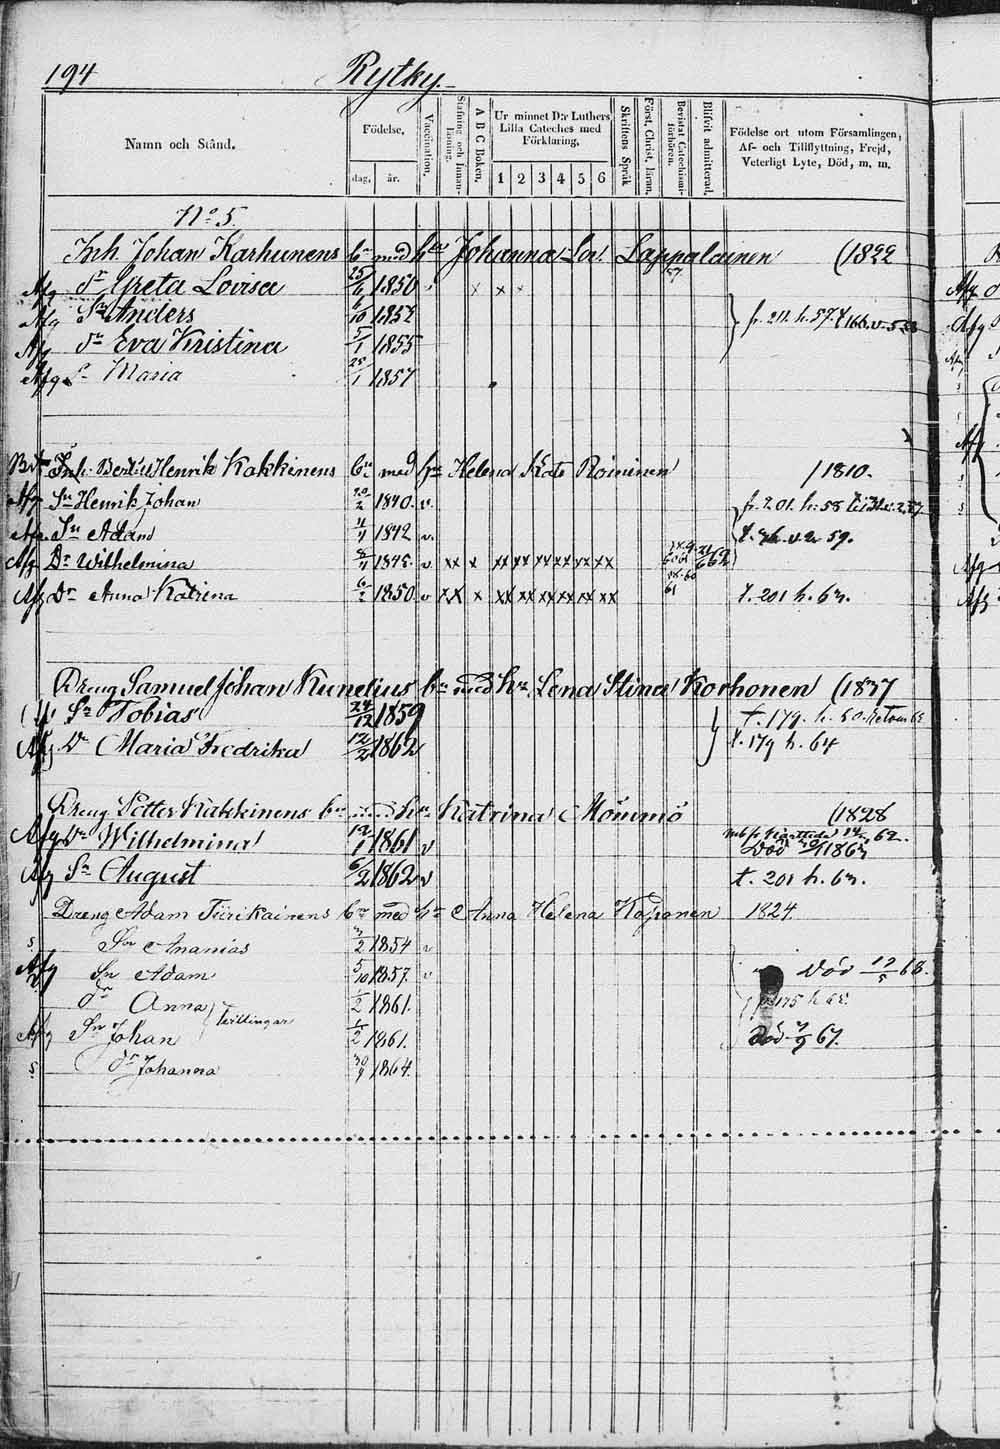 194 Rytky.
Namn och Stånd.
Födelse,
dag, år.
Vaccination.
Stafning och Innan-läsning.
A B C Boken.
Ur minnet D:r Luthers Lilla Cateches med Förklaring.
1 2 3 4 5 6
Skriftens Språk
Först. Christ. läran.
Bevistat Catechismi-förhören.
Blifvit admitterad.
Födelse ort utom Församlingen, Af- och Tillflyttning, Frejd, Veterligt Lyte, Död, m. m.
No 5.
Inh. Johan Karhunens bn med hu Johanna Lov. Lappalainen (1822
Afg dr Greta Lovisa 25/6 1850 x x x 57
Afg Sn Anders 6/10 1852 fr. 211. h. 57.
Afg dr Eva Kristina 5/1 1855
Afg dr Maria 25/1 1857
Inh. Bertils Henrik Kakkinens bn med hu Helena Kats Roininen 1810.
Afg Sn Henrik Johan 20/2 1840. v. fr. 201. h. 58
Afg Sn Adam 4/4 1842 v. 59.
Afg Dr Wilhelmina 8/4 1845. v xx x xx xx xx xx xx xx 662
Afg Dr Anna Katrina 6/2 1850 v xx x xx xx xx xx xx xx 61 t. 201 h. 63.
Dreng Samuel Johan Kunelius bn med hu Lena Stina Korhonen (1837
Sn Tobias 24/12 1859 t. 179. h. 60. Retour
Afg Dr Maria Fredrika 12/2 1862 t. 179 h. 64
Dreng Petter Kakkinens bn med hu Katrina Mömmö (1828
Afg Dr Wilhelmina 12/1 1861 v 62.
Död 1863
Afg Sn August 6/2 1862 v t. 201 h. 63.
Dreng Adam Tiirikainens bn med hu Anna Helena Kaponen 1824
s Sn Ananias 3/2 1854 v
Afg Sn Adam 5/10 1857. v Död 12/5 68.
dr Anna 1/2 1861. tvillingar 175 h
Afg Sn Johan 1/2 1861. död 67.
s dr Johanna 1864.